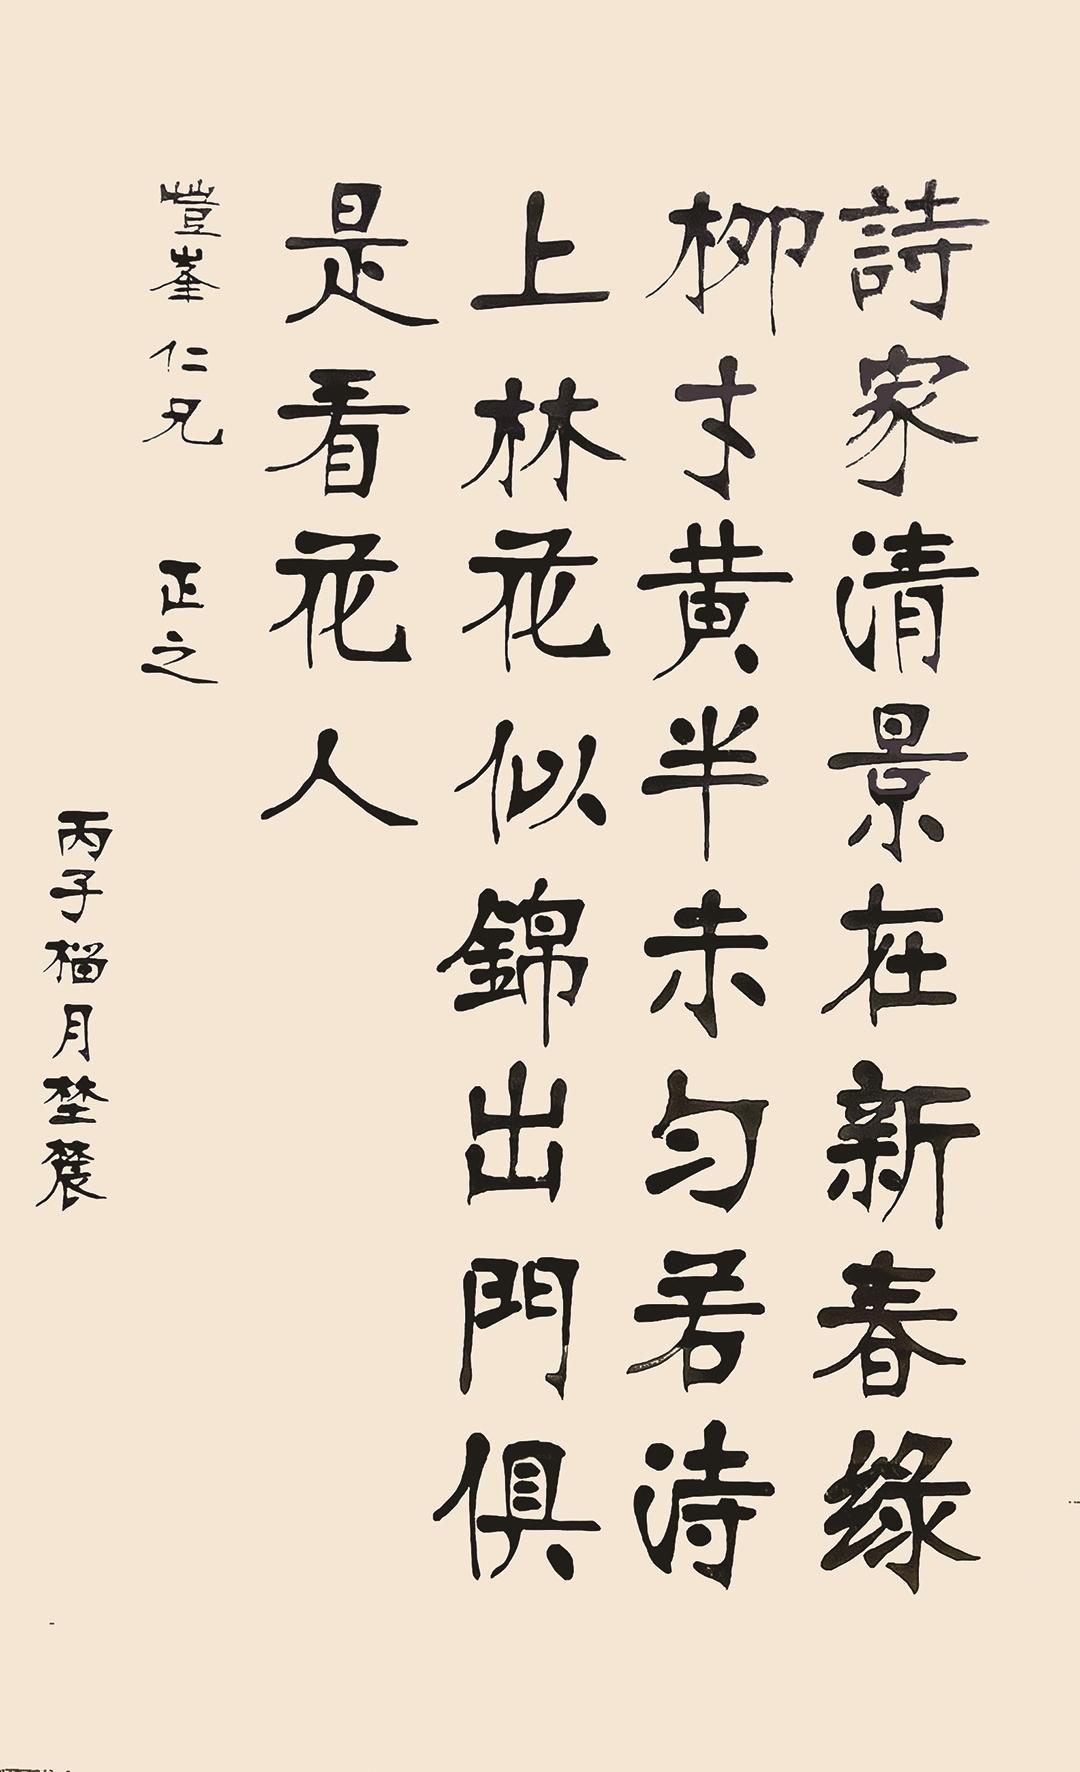 詩家清景在新春緑
柳才黄半未匀若洔
上林花似錦出門俱
是看花人
峯仁兄 正之
丙子榴月埜農